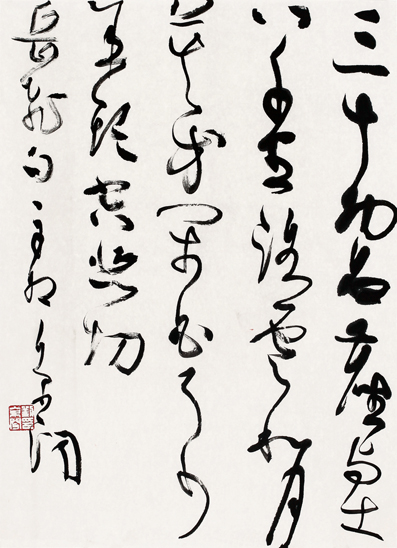 三十功名尘与土
八千里路云和月
莫等闲白了少
年头空悲切
岳飞句